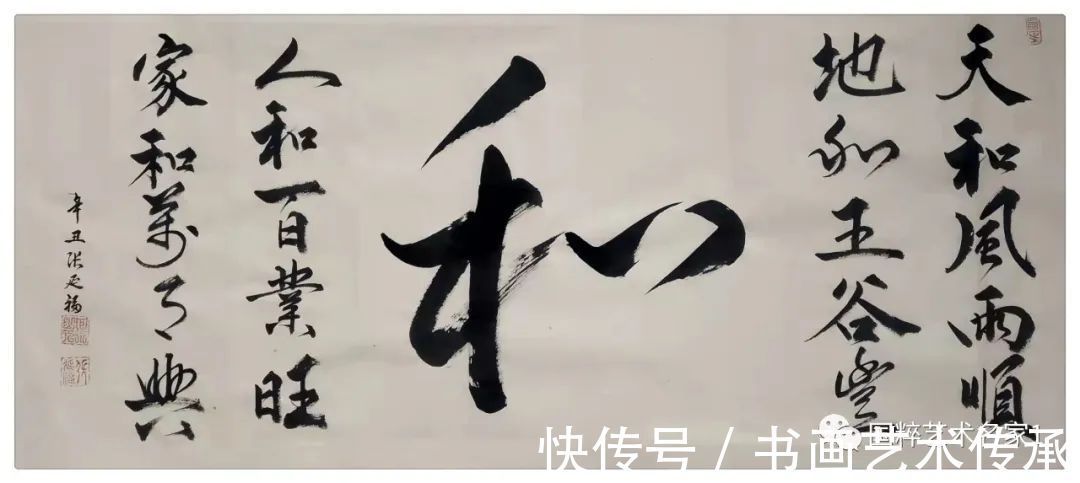 天和风雨順
地和五谷豐
和
人和百業旺
家和萬事興
辛丑张延福
国粹艺术名家
快传号/书画艺术传承